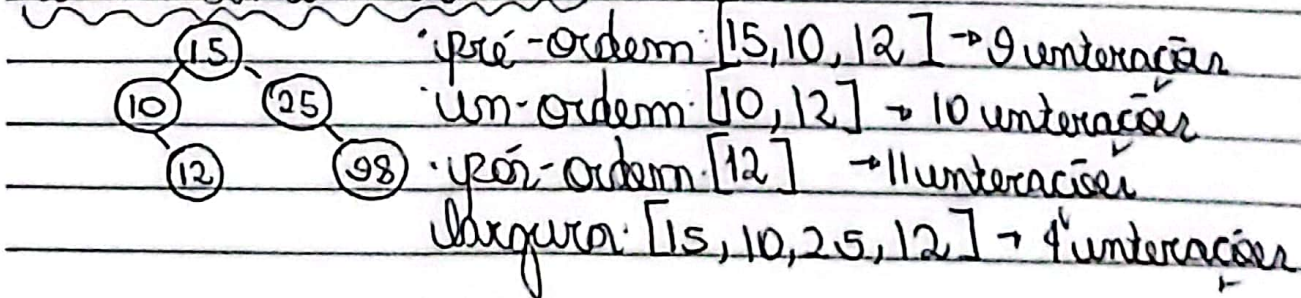 15
10
25
12
98
·pré-ordem: [15,10,12] → 9 interações
·in-ordem: [10,12] → 10 interações
·pós-ordem: [12] → 11 interações
largura: [15,10,25,12] → 4 interações